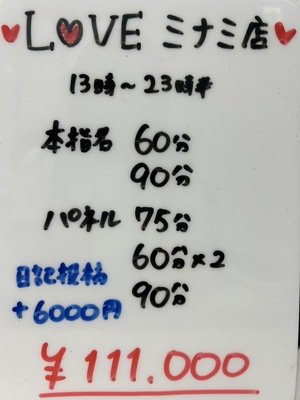 ♥LOVE ミナミ店♥
13時~23時半
本指名 60分
90分
パネル 75分
60分×2
90分
日記投稿
+6000円
¥111.000